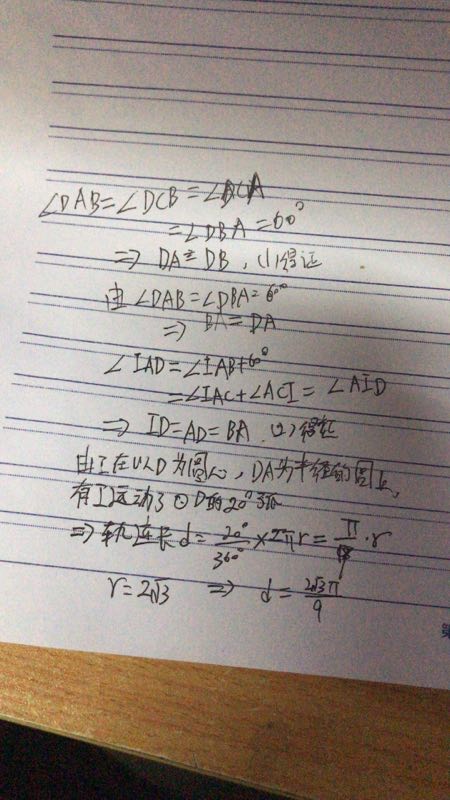 ∠DAB=∠DCB=∠DCA
=∠DBA=60°
⇒ DA=DB,(1)得证
由∠DAB=∠DBA=60°
⇒ BA=DA
∠IAD=∠IAB+60°
=∠IAC+∠ACI=∠AID
⇒ ID=AD=BA,(2)得证
由I在以D为圆心,DA为半径的圆上,
有I运动了⊙D的20°弧
⇒轨迹长d=20°/360°×2πr=π/9·r
r=2√3 ⇒ d=2√3π/9
第